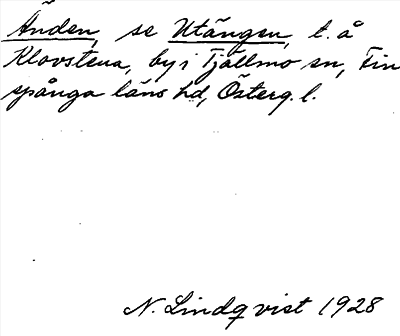 Änden, se Utängen, t. å
Klovstena, by i Tjällmo sn, Fin
spånga läns hd, Österg. l.
N. Lindqvist 1928